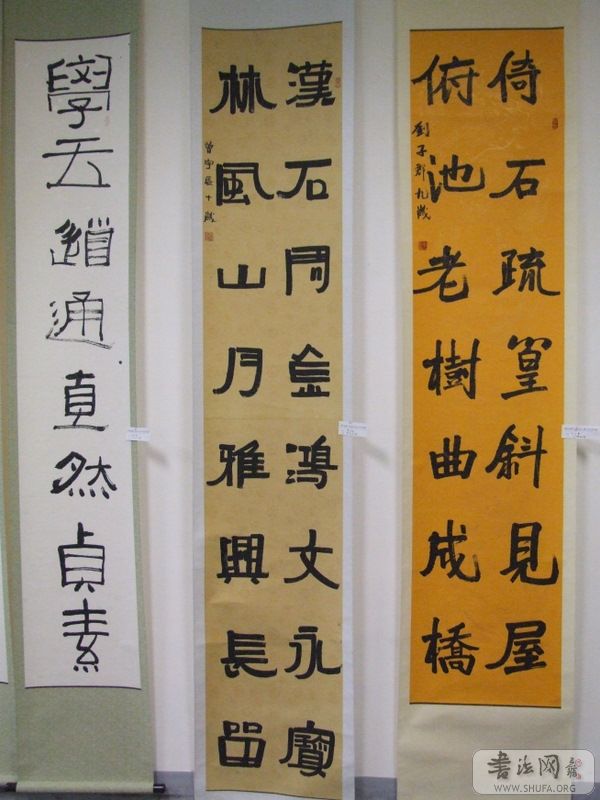 倚石疏篁斜見屋
俯池老樹曲成橋
劉子郡九歲
漢石周金鴻文永寶
林風山月雅興長留
曾宇辰十歲
學 通直然貞素
書法网
WWW.SHUFA.ORG